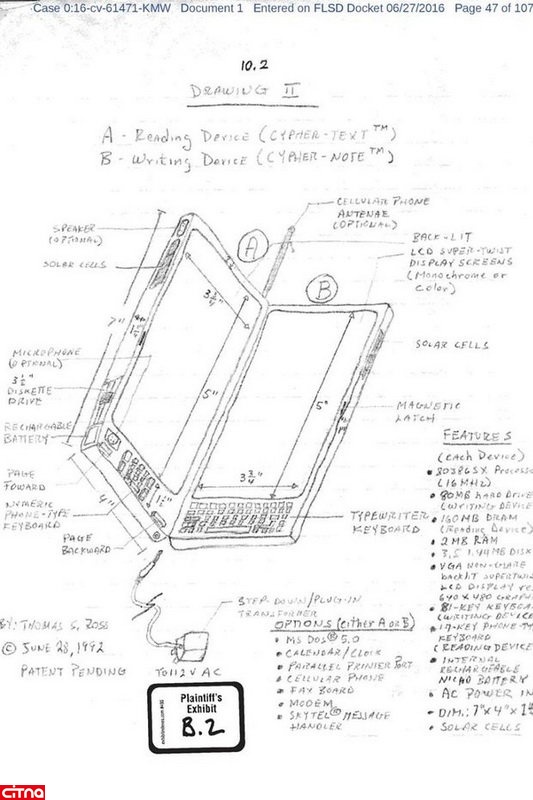 Case 0:16-cv-61471-KMW Document 1 Entered on FLSD Docket 06/27/2016 Page 47 of 107
10.2
DRAWING II
A - Reading Device (CYPHER-TEXT™)
B - Writing Device (CYPHER-NOTE™)
CELLULAR PHONE
ANTENAE
(OPTIONAL)
SPEAKER
(OPTIONAL)
SOLAR CELLS
A
B
BACK-LIT
LCD SUPER-TWIST
DISPLAY SCREENS
(Monochrome or
Color)
3 3/4"
7"
SOLAR CELLS
MICROPHONE
(OPTIONAL)
3 1/2"
DISKETTE
DRIVE
5"
5"
MAGNETIC
LATCH
RECHARGABLE
BATTERY
PAGE
FOWARD
4"
1 1/2"
3 3/4"
NUMERIC
PHONE-TYPE
KEYBOARD
PAGE
BACKWARD
TYPEWRITER
KEYBOARD
FEATURES
(Each Device)
• 80386SX Processo
(16 MHz)
• 80MB HARD DRIVE
(WRITING DEVICE
• 160MB DRAM
(Reading Device)
• 2 MB RAM
• 3.5 1.44MB DISK
• VGA NON-GLARE
backlit SUPERTWI
LCD DISPLAY
640 X 480 GRAPH
• 81-KEY KEYBOA
(WRITING DEVICE
• 17-KEY PHONE-TY
KEYBOARD
(READING DEVICE
• INTERNAL
RECHARGEABLE
NICAD BATTERY
• AC POWER IN
• DIM.: 7"x4"x
• SOLAR CELLS
STEP-DOWN/PLUG-IN
TRANSFORMER
TO 112 V AC
OPTIONS (either A or B)
• MS DOS® 5.0
• CALENDAR/CLOCK
• PARALLEL PRINTER PORT
• CELLULAR PHONE
• FAX BOARD
• MODEM
• SKYTEL® MESSAGE
HANDLER
BY: THOMAS S. ROSS
© JUNE 28, 1992
PATENT PENDING
Plaintiff's
Exhibit
B.2
CITNA